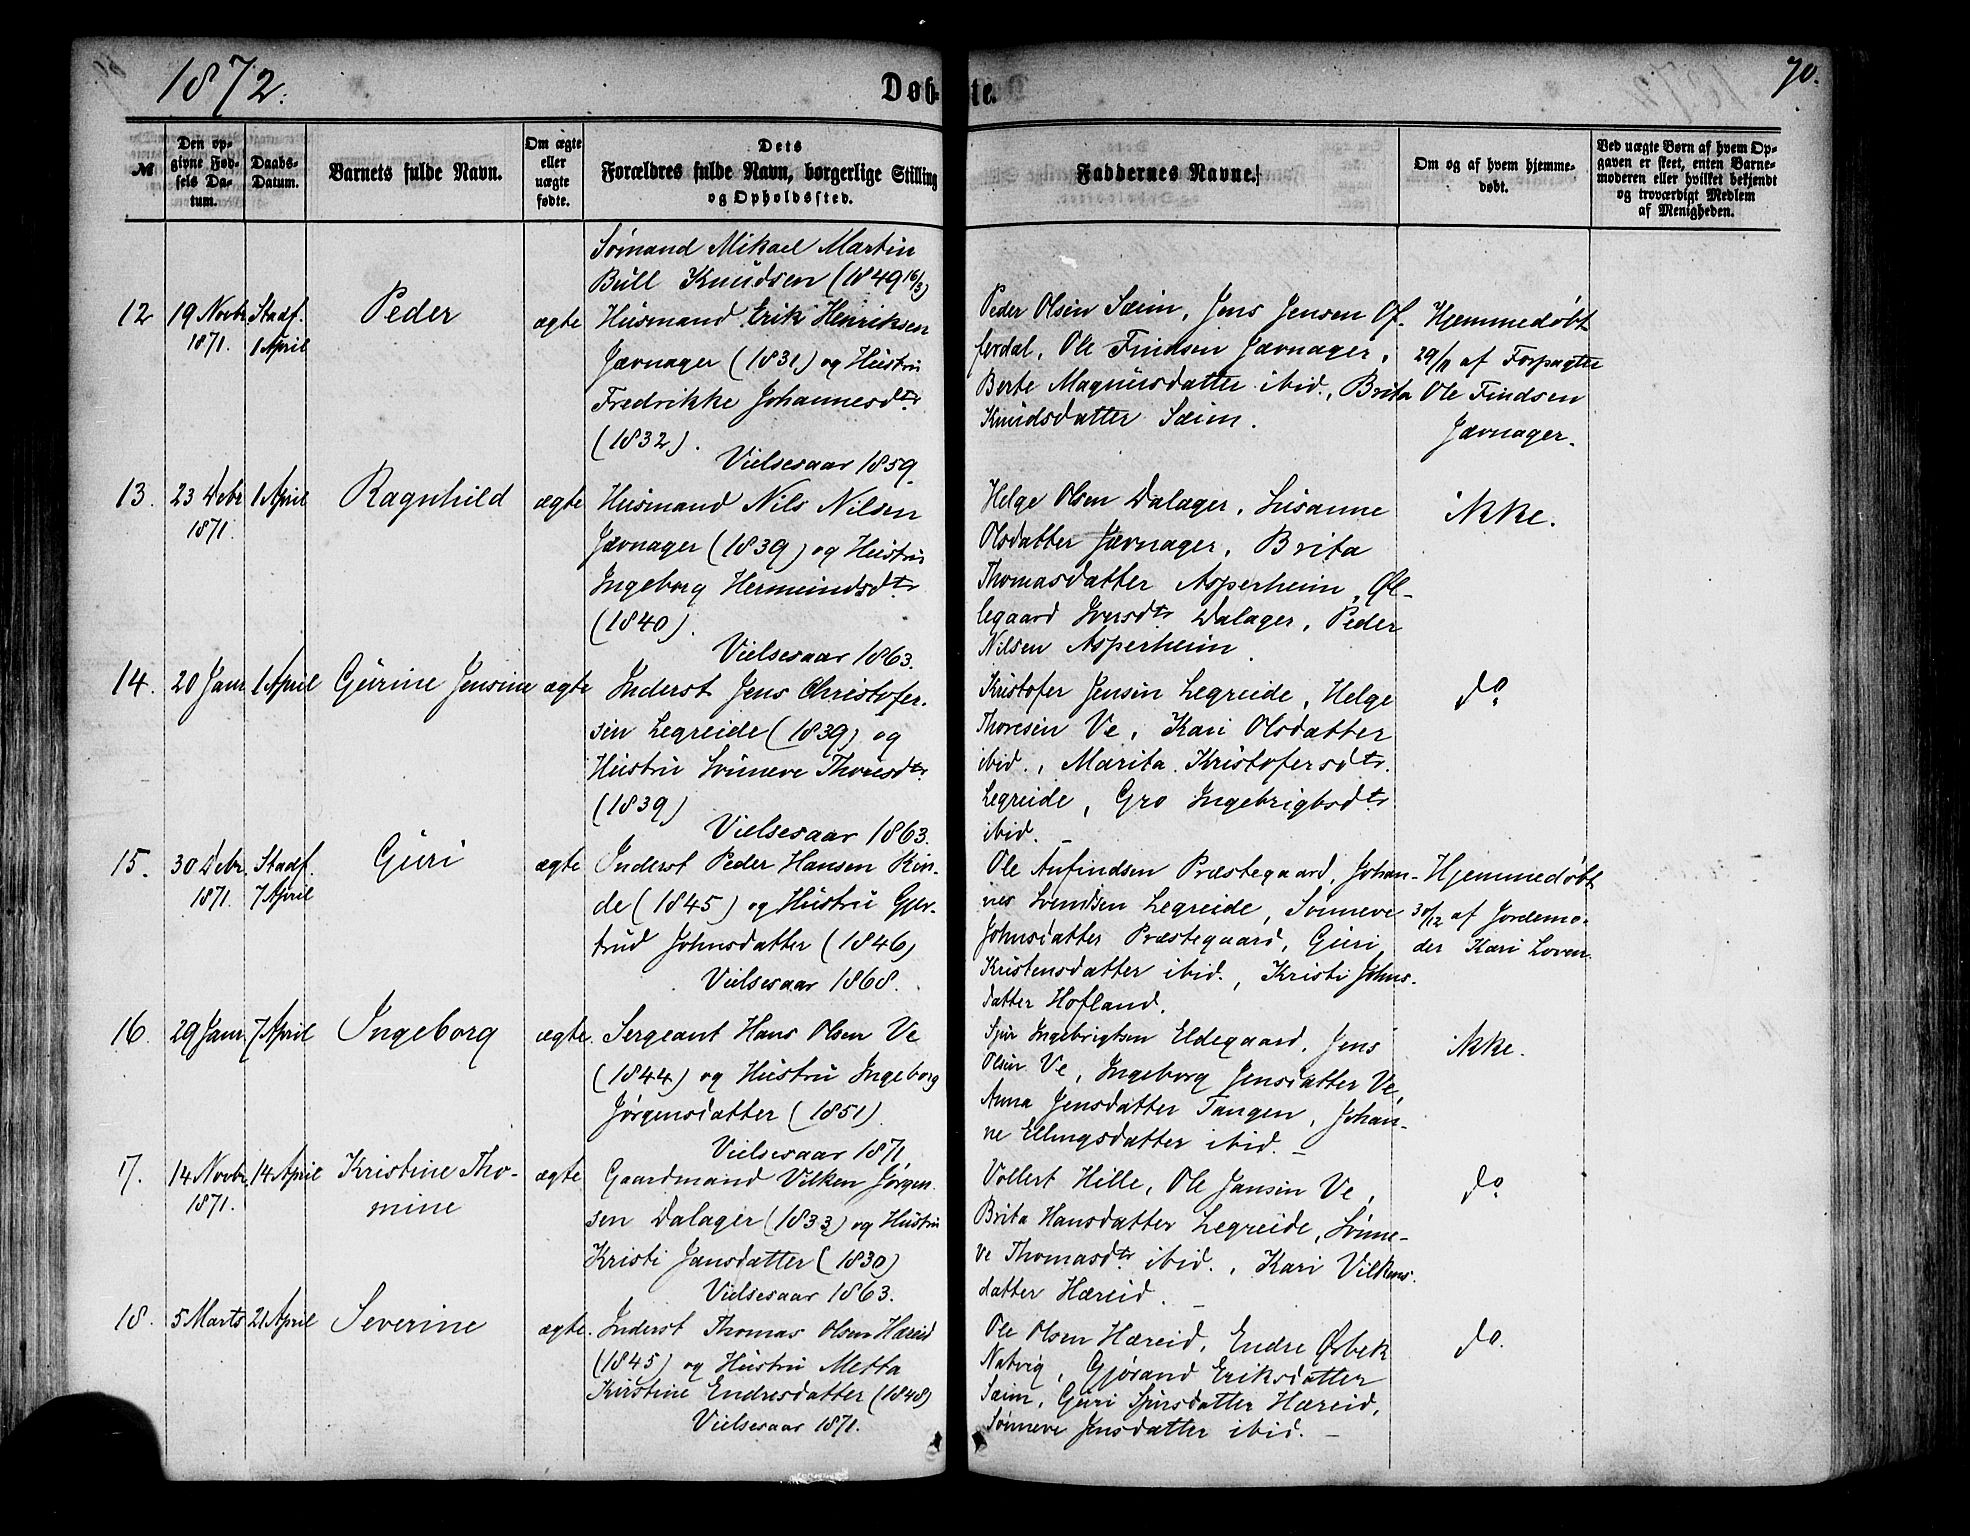 1872.
Døb-
te.
70.
№
Den op-
givne Fød-
sels Da-
tum.
Daabs-
Datum.
Barnets fulde Navn.
Om ægte
eller
uægte
fødte.
Dets
Forældres fulde Navn, borgerlige Stilling
og Opholdssted.
Faddernes Navne.
Om og af hvem hjemme-
døbt.
Ved uægte Børn af hvem Op-
gaven er skeet, enten Barne-
moderen eller hvilket bekjendt
og troværdigt Medlem
af Menigheden.
Sømand Mikael Martin
Bull Knudsen (1849 16/3)
12
19 Novbr
1871.
Stadf.
1 April
Peder
ægte
Husmand Erik Henriksen
Jævnager (1831) og Hustru
Fredrikke Johannesdtr
(1832).
Vielsesaar 1859
Peder Olsen Sæim, Jens Jensen Of-
ferdal, Ole Findsen Jævnager,
Berte Magnusdatter ibid., Brita
Knudsdatter Sæim.
Hjemmedøbt
29/11 af Forpagter
Ole Findsen
Jævnager.
13.
23 Debr
1871.
1 April
Ragnhild
ægte
Husmand Nils Nilsen
Jævnager (1839) og Hustru
Ingeborg Hermundsdtr
(1840).
Vielsesaar 1863.
Helge Olsen Dalager, Susanne
Olsdatter Jævnager, Brita
Thomasdatter Asperheim, Øl-
legaard Iversdtr Dalager, Peder
Nilsen Asperheim
ikke.
14.
20 Janr
1 April
Gurine Jensine
ægte
Inderst Jens Christofer-
sen Legreide (1839) og
Hustru Sønneve Thoresdtr
(1839)
Vielsesaar 1863.
Kristofer Jensen Legreide, Helge
Thoresen Ve, Kari Olsdatter
ibid., Marita Kristofersdtr.
Legreide, Gro Ingebrigtsdtr
ibid. –
do
15.
30 Debr
1871.
Stadf.
7 April
Guri
ægte
Inderst Peder Hansen Kin-
de (1845) og Hustru Gjer-
trud Johnsdatter (1846)
Vielsesaar 1868.
Ole Anfindsen Præstegaard, Johan-
nes Svendsen Legreide, Sønneve
Johnsdatter Præstegaard, Guri
Kristensdatter ibid., Kristi Johns-
datter Hofland.
Hjemmedøbt
30/12 af Jordemo-
der Kari Loven.
16.
29 Janr
7 April
Ingeborg
ægte.
Sergeant Hans Olsen Ve
(1844) og Hustru Ingeborg
Jørgensdatter (1851)
Vielsesaar 1871
Sjur Ingebrigtsen Eldegaard, Jens
Olsen Ve, Ingeborg Jensdatter Ve,
Anna Jensdatter Tangen, Johan-
ne Ellingsdatter ibid. –
ikke.
17.
14 Novbr
1871.
14 April
Kristine Tho-
mine
ægte
Gaardmand Vilken Jørgen-
sen Dalager (1833) og Hustru
Kristi Jansdatter (1830)
Vielsesaar 1863.
Vollert Hille, Ole Jansen Ve,
Brita Hansdatter Legreide, Sønne-
ve Thomasdtr ibid., Kari Vilkens-
datter Hæreid. –
do
18.
5 Marts
21 April
Severine
ægte.
Inderst Thomas Olsen Hæreid
(1845) og Hustru Metta
Kirstine Endresdatter (1848)
Vielsesaar 1871.
Ole Olsen Hæreid, Endre Øsbek
Natvig, Gjørand Eriksdatter
Sæim, Guri Sjursdatter Hæreid,
Sønneve Jensdatter ibid. –
do.